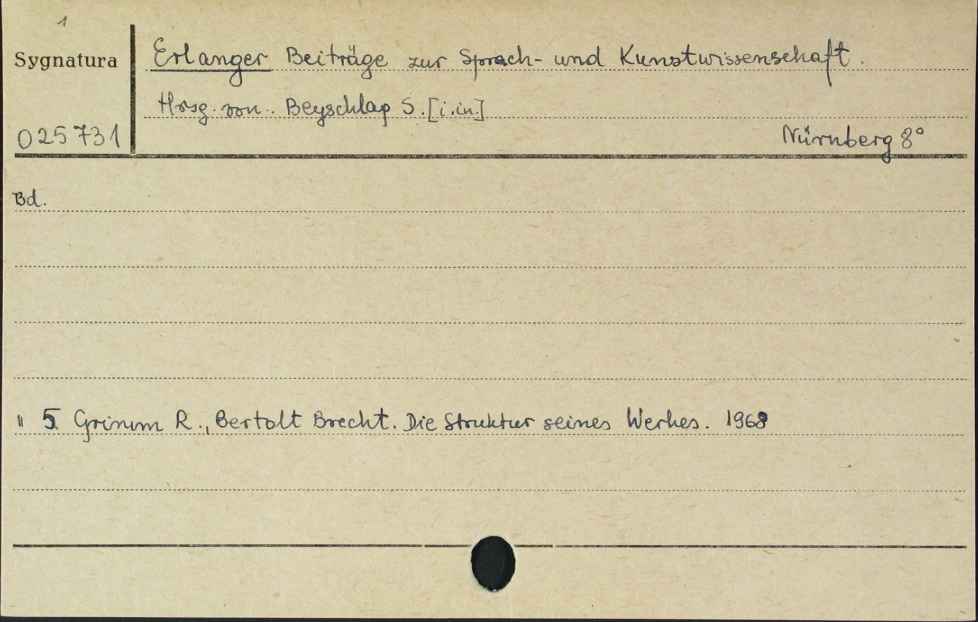 1
Sygnatura
Erlanger Beiträge zur Sprach- und Kunstwissenschaft.
Hrsg. von. Beyschlag S. [i.in.]
025731
Nürnberg 8°
Bd.
" 5. Grimm R., Bertolt Brecht. Die Struktur seines Werkes. 1968